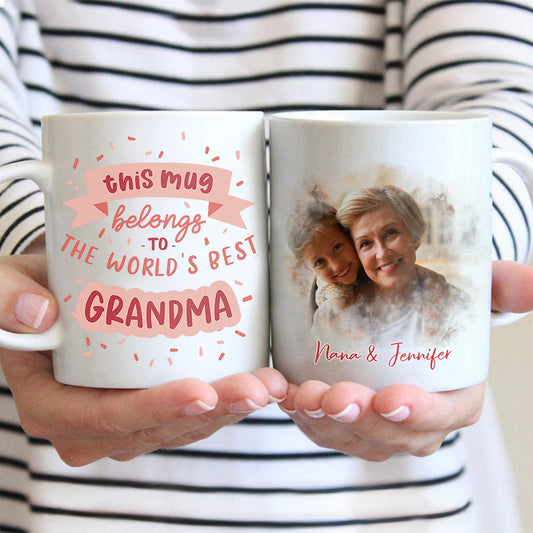 this mug
belongs
- TO -
THE WORLD'S BEST
GRANDMA
Nana & Jennifer